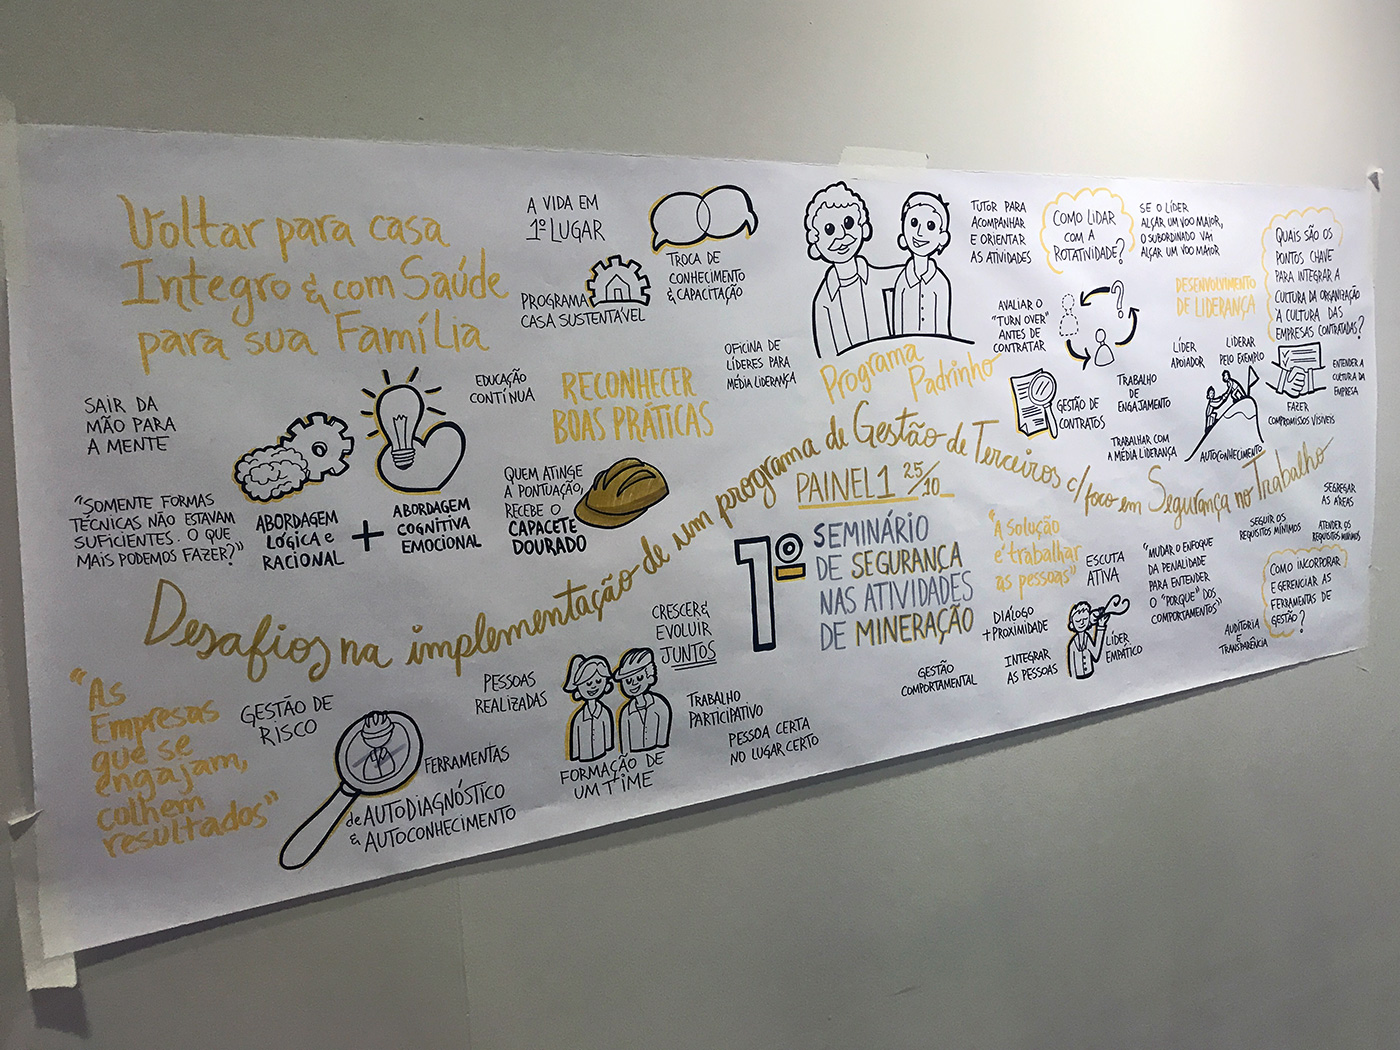 Voltar para casa
Integro & com Saúde
para sua Família
SAIR DA
MÃO PARA
A MENTE
"SOMENTE FORMAS
TÉCNICAS NÃO ESTAVAM
SUFICIENTES. O QUE
MAIS PODEMOS FAZER?"
ABORDAGEM
LÓGICA e
RACIONAL
+
ABORDAGEM
COGNITIVA
EMOCIONAL
A VIDA EM
1º LUGAR
PROGRAMA
CASA SUSTENTÁVEL
TROCA DE
CONHECIMENTO
& CAPACITAÇÃO
EDUCAÇÃO
CONTÍNUA
RECONHECER
BOAS PRÁTICAS
OFICINA DE
LÍDERES PARA
MÉDIA LIDERANÇA
QUEM ATINGE
A PONTUAÇÃO,
RECEBE O
CAPACETE
DOURADO
Programa
Padrinho
TUTOR PARA
ACOMPANHAR
E ORIENTAR
AS ATIVIDADES
COMO LIDAR
COM A
ROTATIVIDADE?
SE O LÍDER
ALÇAR UM VOO MAIOR,
O SUBORDINADO VAI
ALÇAR UM VOO MAIOR
QUAIS SÃO OS
PONTOS CHAVE
PARA INTEGRAR A
CULTURA DA ORGANIZAÇÃO
À CULTURA DAS
EMPRESAS CONTRATADAS?
AVALIAR O
"TURN OVER"
ANTES DE
CONTRATAR
?
DESENVOLVIMENTO
DE LIDERANÇA
LÍDER
APOIADOR
LIDERAR
PELO EXEMPLO
ENTENDER A
CULTURA DA
EMPRESA
FAZER
COMPROMISSOS VISÍVEIS
GESTÃO DE
CONTRATOS
TRABALHO
DE
ENGAJAMENTO
TRABALHAR COM
A MÉDIA LIDERANÇA
AUTOCONHECIMENTO
Desafios na implementação de um programa de Gestão de Terceiros c/ foco em Segurança no Trabalho
PAINEL 1 25/10
1º
SEMINÁRIO
DE SEGURANÇA
NAS ATIVIDADES
DE MINERAÇÃO
"A SOLUÇÃO
é trabalhar
as pessoas"
ESCUTA
ATIVA
DIÁLOGO
+ PROXIMIDADE
INTEGRAR
AS PESSOAS
LÍDER
EMPÁTICO
GESTÃO
COMPORTAMENTAL
"MUDAR O ENFOQUE
DA PENALIDADE
PARA ENTENDER
O "PORQUE" DOS
COMPORTAMENTOS"
SEGREGAR
AS ÁREAS
SEGUIR OS
REQUISITOS MÍNIMOS
ATENDER OS
REQUISITOS MÍNIMOS
COMO INCORPORAR
E GERENCIAR AS
FERRAMENTAS DE
GESTÃO?
AUDITORIA
E
TRANSPARÊNCIA
"As
Empresas
que se
engajam,
colhem
resultados"
GESTÃO DE
RISCO
FERRAMENTAS
de AUTODIAGNÓSTICO
& AUTOCONHECIMENTO
PESSOAS
REALIZADAS
CRESCER &
EVOLUIR
JUNTOS
TRABALHO
PARTICIPATIVO
FORMAÇÃO DE
UM TIME
PESSOA CERTA
NO LUGAR CERTO